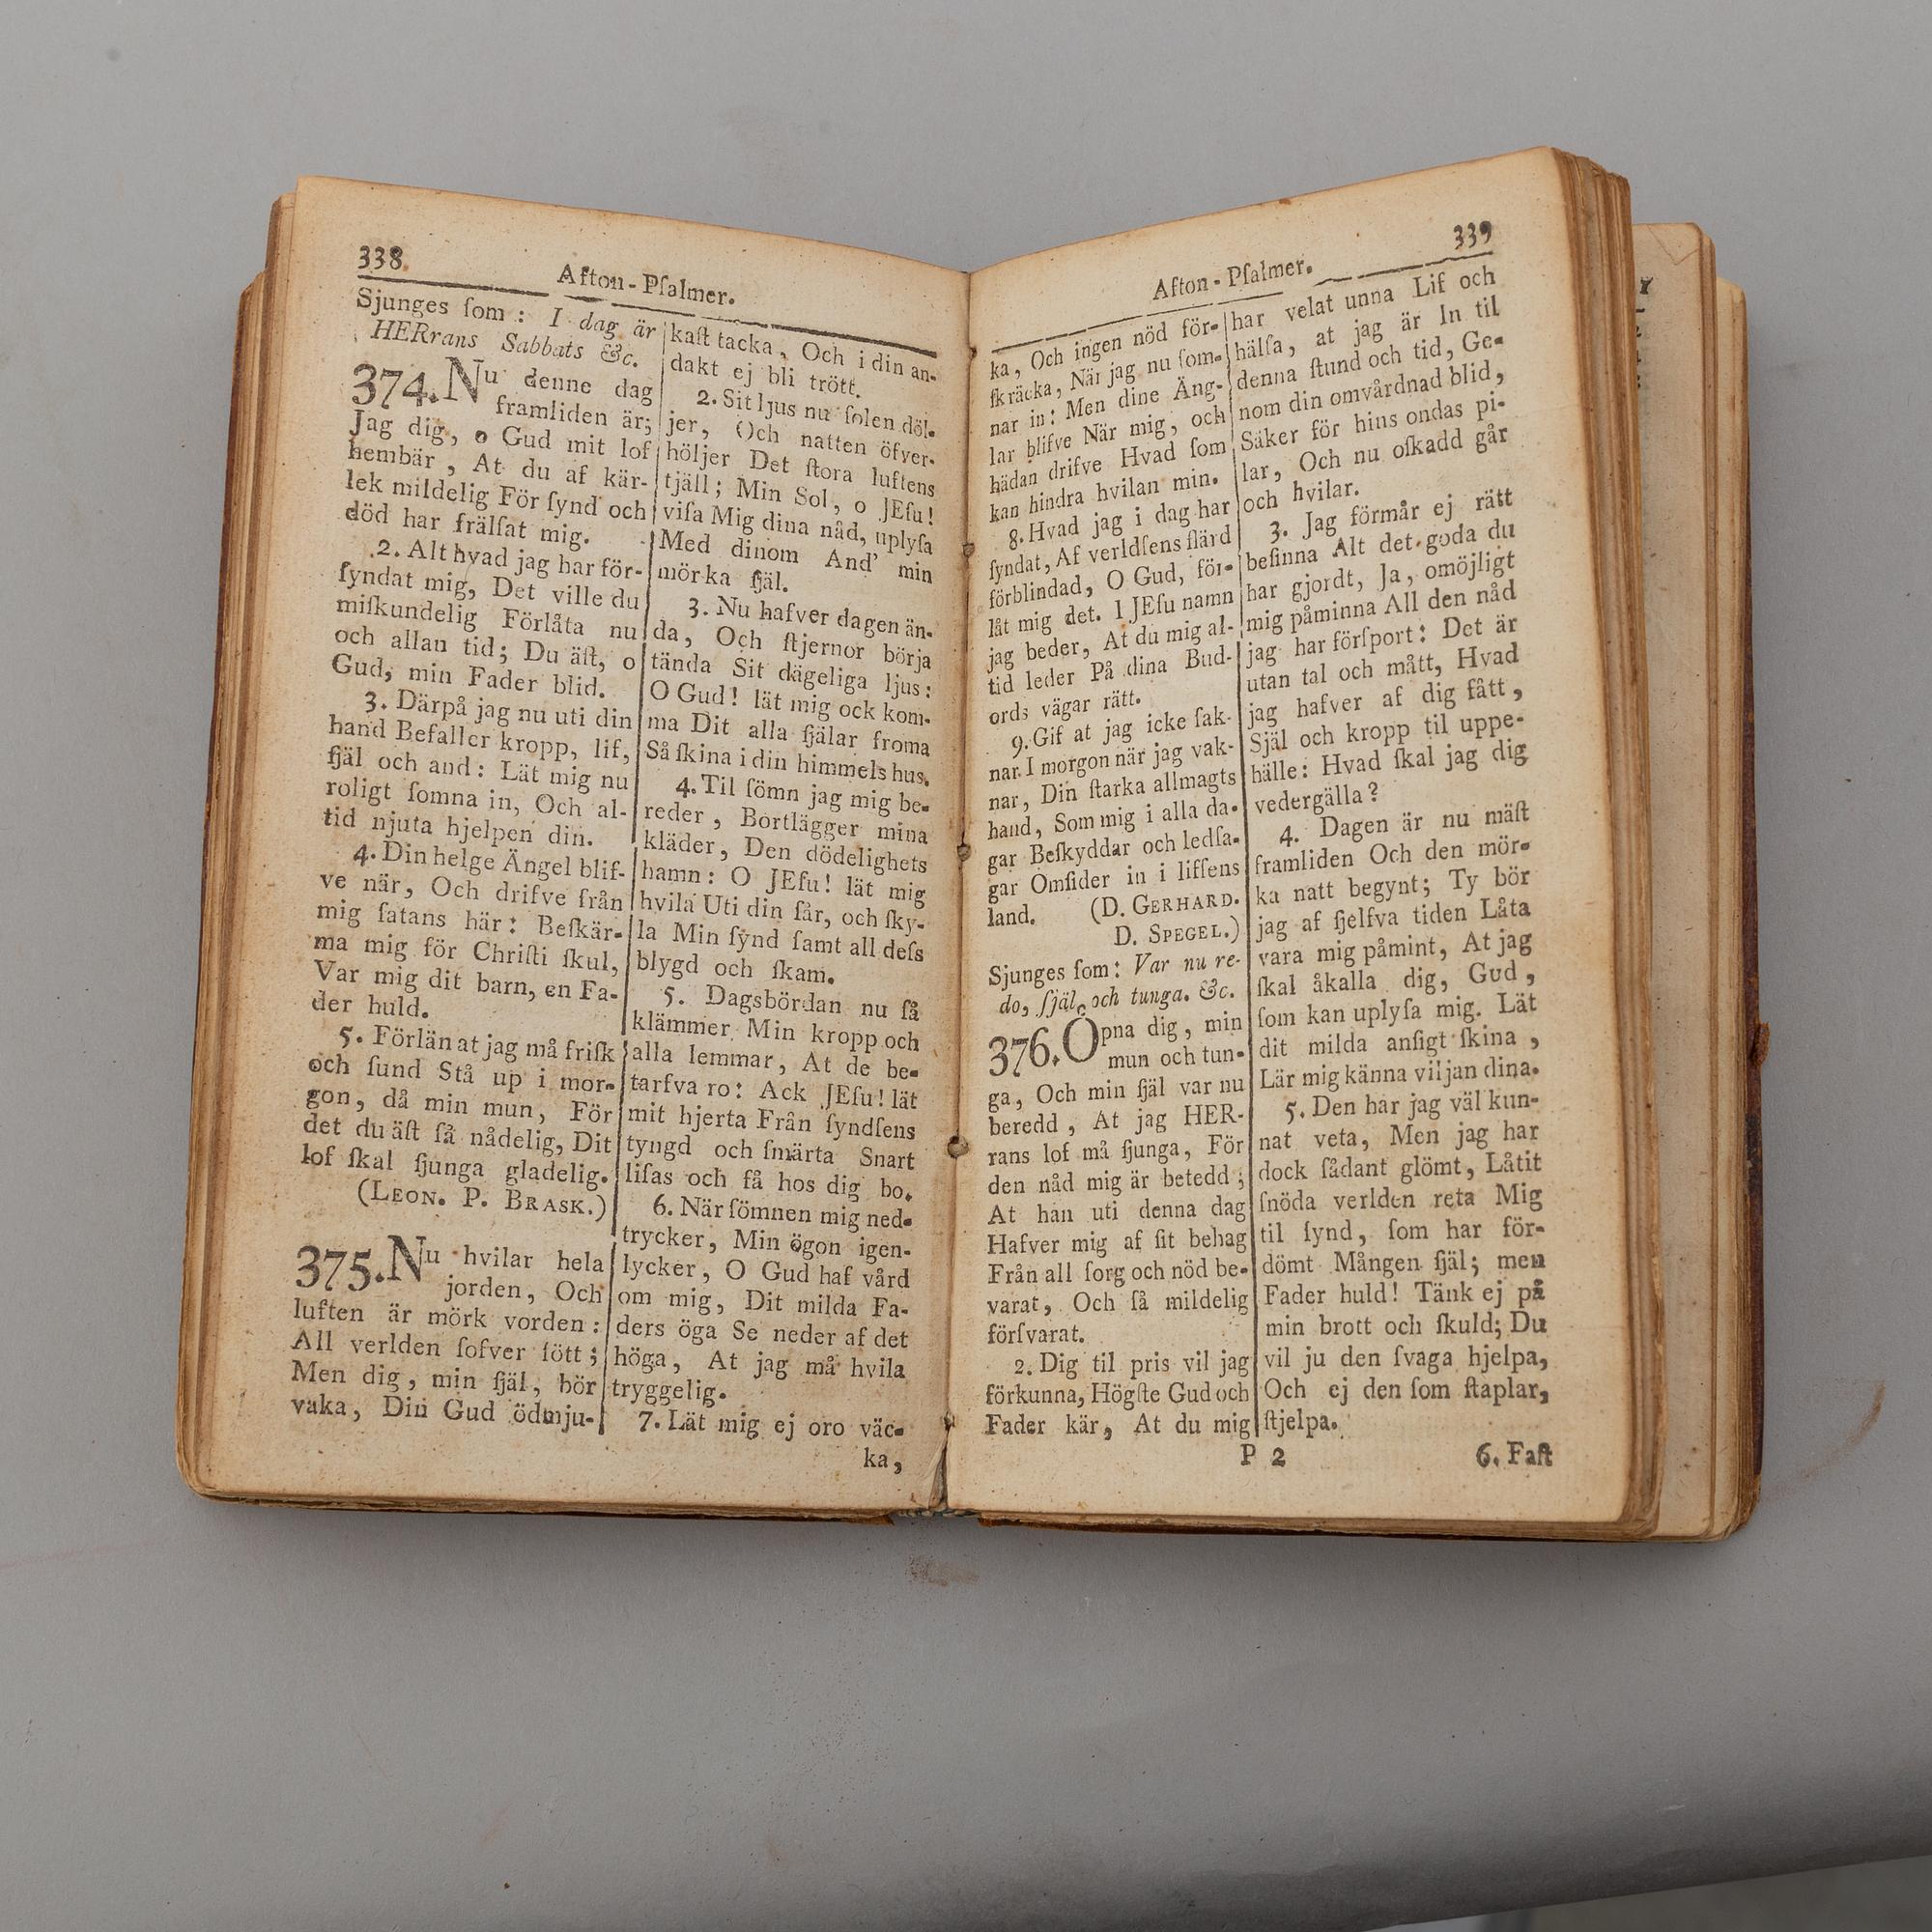 338.
Afton-Pſalmer.
Sjunges ſom: I dag är
HERrans Sabbats &c.
374. Nu denne dag
framliden är;
Jag dig, o Gud mit lof
hembär, At du af kär-
lek mildelig För ſynd och
död har frälſat mig.
2. Alt hvad jag har för-
ſyndat mig, Det ville du
miſkundelig Förlåta nu
och allan tid; Du äſt, o
Gud, min Fader blid.
3. Därpå jag nu uti din
hand Befaller kropp, lif,
ſjäl och and: Lät mig nu
roligt ſomna in, Och al-
tid njuta hjelpen din.
4. Din helge Ängel blif-
ve när, Och drifve från
mig ſatans här: Beſkär-
ma mig för Chriſti ſkul,
Var mig dit barn, en Fa-
der huld.
5. Förlän at jag må friſk
och ſund Stå up i mor-
gon, då min mun, För
det du äſt ſå nådelig, Dit
lof ſkal ſjunga gladelig.
(LEON. P. BRASK.)
375. Nu hvilar hela
jorden, Och
luften är mörk vorden:
All verlden ſofver ſött;
Men dig, min ſjäl, bör
vaka, Din Gud ödmju-
kaſt tacka, Och i din an-
dakt ej bli trött.
2. Sit ljus nu ſolen döl-
jer, Och natten öfver-
höljer Det ſtora luftens
tjäll; Min Sol, o JEſu!
viſa Mig dina nåd, uplyſa
Med dinom And' min
mörka ſjäl.
3. Nu hafver dagen än-
da, Och ſtjernor börja
tända Sit dägeliga ljus:
O Gud! lät mig ock kom-
ma Dit alla ſjälar froma
Så ſkina i din himmels hus.
4. Til ſömn jag mig be-
reder, Bortlägger mina
kläder, Den dödelighets
hamn: O JEſu! lät mig
hvila Uti din ſår, och ſky-
la Min ſynd ſamt all deſs
blygd och ſkam.
5. Dagsbördan nu ſå
klämmer Min kropp och
alla lemmar, At de be-
tarfva ro: Ack JEſu! lät
mit hjerta Från ſyndſens
tyngd och ſmärta Snart
liſas och få hos dig bo.
6. När ſömnen mig ned-
trycker, Min ögon igen-
lycker, O Gud haf vård
om mig, Dit milda Fa-
ders öga Se neder af det
höga, At jag må hvila
tryggelig.
7. Lät mig ej oro väc-
ka,
339
Afton-Pſalmer.
ka, Och ingen nöd för-
ſkräcka, När jag nu ſom-
nar in: Men dine Äng-
lar blifve När mig, och
hädan drifve Hvad ſom
kan hindra hvilan min.
8. Hvad jag i dag har
ſyndat, Af verldſens flärd
förblindad, O Gud, för-
låt mig det. I JEſu namn
jag beder, At du mig al-
tid leder På dina Bud-
ords vägar rätt.
9. Gif at jag icke ſak-
nar I morgon när jag vak-
nar, Din ſtarka allmagts
hand, Som mig i alla da-
gar Beſkyddar och ledſa-
gar Omſider in i lifſens
land. (D. GERHARD.
D. SPEGEL.)
Sjunges ſom: Var nu re-
do, ſjäl och tunga. &c.
376. Öpna dig, min
mun och tun-
ga, Och min ſjäl var nu
beredd, At jag HER-
rans lof må ſjunga, För
den nåd mig är betedd;
At han uti denna dag
Hafver mig af ſit behag
Från all ſorg och nöd be-
varat, Och ſå mildelig
förſvarat.
2. Dig til pris vil jag
förkunna, Högſte Gud och
Fader kär, At du mig
har velat unna Lif och
hälſa, at jag är In til
denna ſtund och tid, Ge-
nom din omvårdnad blid,
Säker för hins ondas pi-
lar, Och nu oſkadd går
och hvilar.
3. Jag förmår ej rätt
beſinna Alt det goda du
har gjordt, Ja, omöjligt
mig påminna All den nåd
jag har förſport: Det är
utan tal och mått, Hvad
jag hafver af dig fått,
Själ och kropp til uppe-
hälle: Hvad ſkal jag dig
vedergälla?
4. Dagen är nu mäſt
framliden Och den mör-
ka natt begynt; Ty bör
jag af ſjelfva tiden Låta
vara mig påmint, At jag
ſkal åkalla dig, Gud,
ſom kan uplyſa mig. Lät
dit milda anſigt ſkina,
Lär mig känna viljan dina.
5. Den har jag väl kun-
nat veta, Men jag har
dock ſådant glömt, Låtit
ſnöda verlden reta Mig
til ſynd, ſom har för-
dömt Mången ſjäl; men
Fader huld! Tänk ej på
min brott och ſkuld; Du
vil ju den ſvaga hjelpa,
Och ej den ſom ſtaplar,
ſtjelpa.
P 2
6. Faſt